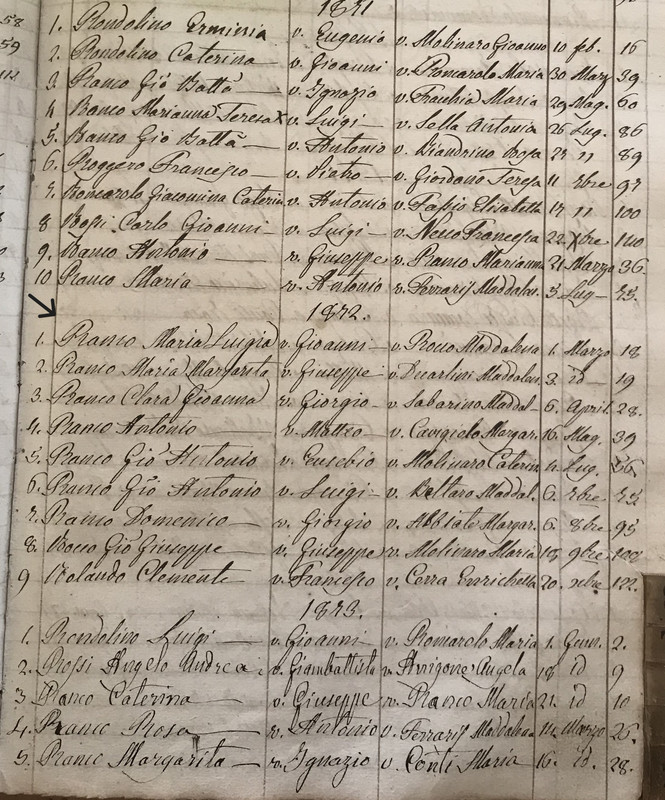 58
59
112
1871
1. Rondolino Erminia v. Eugenio v. Molinaro Gioanna 10 feb. 16
2. Rondolino Caterina v. Gioanni v. Romarolo Maria 30 Marz 39
3 Ranco Gio Batta v. Ignazio v. Fracchia Maria 29 Mag. 60
4 Ranco Marianna Teresa v. Luigi v. Sella Antonia 26 Lug. 86
5. Ranco Gio Batta v. Antonio v. Giandrino Rosa 23 11 89
6. Roggero Francesco v. Pietro v. Giordano Teresa 11 8bre 97
7. Romarolo Giacomina Caterin v. Antonio v. Elisabetta 17 11 100
8 Rossi Carlo Gioanni v. Luigi v. Francesca 22 Xbre 110
9. Ranco Antonio v. Giuseppe v. Ranco Marianna 21 Marzo 36
10 Ranco Maria v. Antonio v. Ferraris Maddalen. 5 Lug 75
1872.
1. Ranco Maria Luigia v. Gioanni v. Rocco Maddalena 1. Marzo 18
2. Ranco Maria Margarita v. Giuseppe v. Maddalen. 3. id 19
3. Ranco Clara Gioanna v. Giorgio v. Sabarino Maddal 6. April. 28.
4. Ranco Antonio v. Matteo v. Margar. 16. Mag. 39
5. Ranco Gio Antonio v. Eusebio v. Molinaro Caterin 4. Lug. 56
6. Ranco Gio Antonio v. Luigi v. Beltaro Maddal. 6. 7bre 75
7. Ranco Domenico v. Giorgio v. Abbiate Margar. 6. 8bre 95
8. Rocco Gio Giuseppe v. Giuseppe v. Molinaro Maria 18 9bre 102
9 Rolando Clemente v. Francesco v. Cerra Enrichetta 20. 122.
1873.
1. Rondolino Luigi v. Gioanni v. Romarolo Maria 1. Genn. 2.
2. Rossi Angelo Andrea v. Giambattista v. Arrigone Angela 18 id 9
3 Ranco Caterina v. Giuseppe v. Ranco Maria 21. id 10
4. Ranco Rosa v. Antonio v. Ferraris Maddalena 14. Marzo 26.
5. Ranco Margarita v. Ignazio v. Conti Maria 16. id. 28.